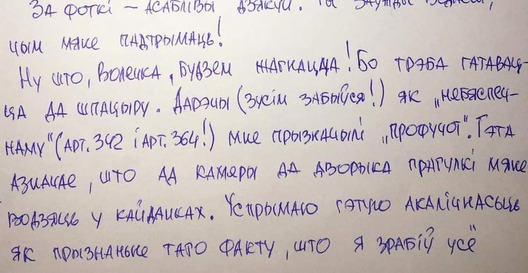 За фоткі – асаблівы дзякуй. Ты заўжды ведаеш,
чым мяне падтрымаць!
Ну што, Волечка, будзем жагнацца! Бо трэба гатавац-
ца да шпацыру. Дарэчы (зусім забыўся!) як „небяспеч-
наму“ (арт. 342 і арт. 364!) мне прызначылі „профучот“. Гэта
азначае, што ад камеры да дворыка прагулкі мяне
водзяць у кайданках. Успрымаю гэтую акалічнасьць
як прызнаньне таго факту, што я зрабіў усё